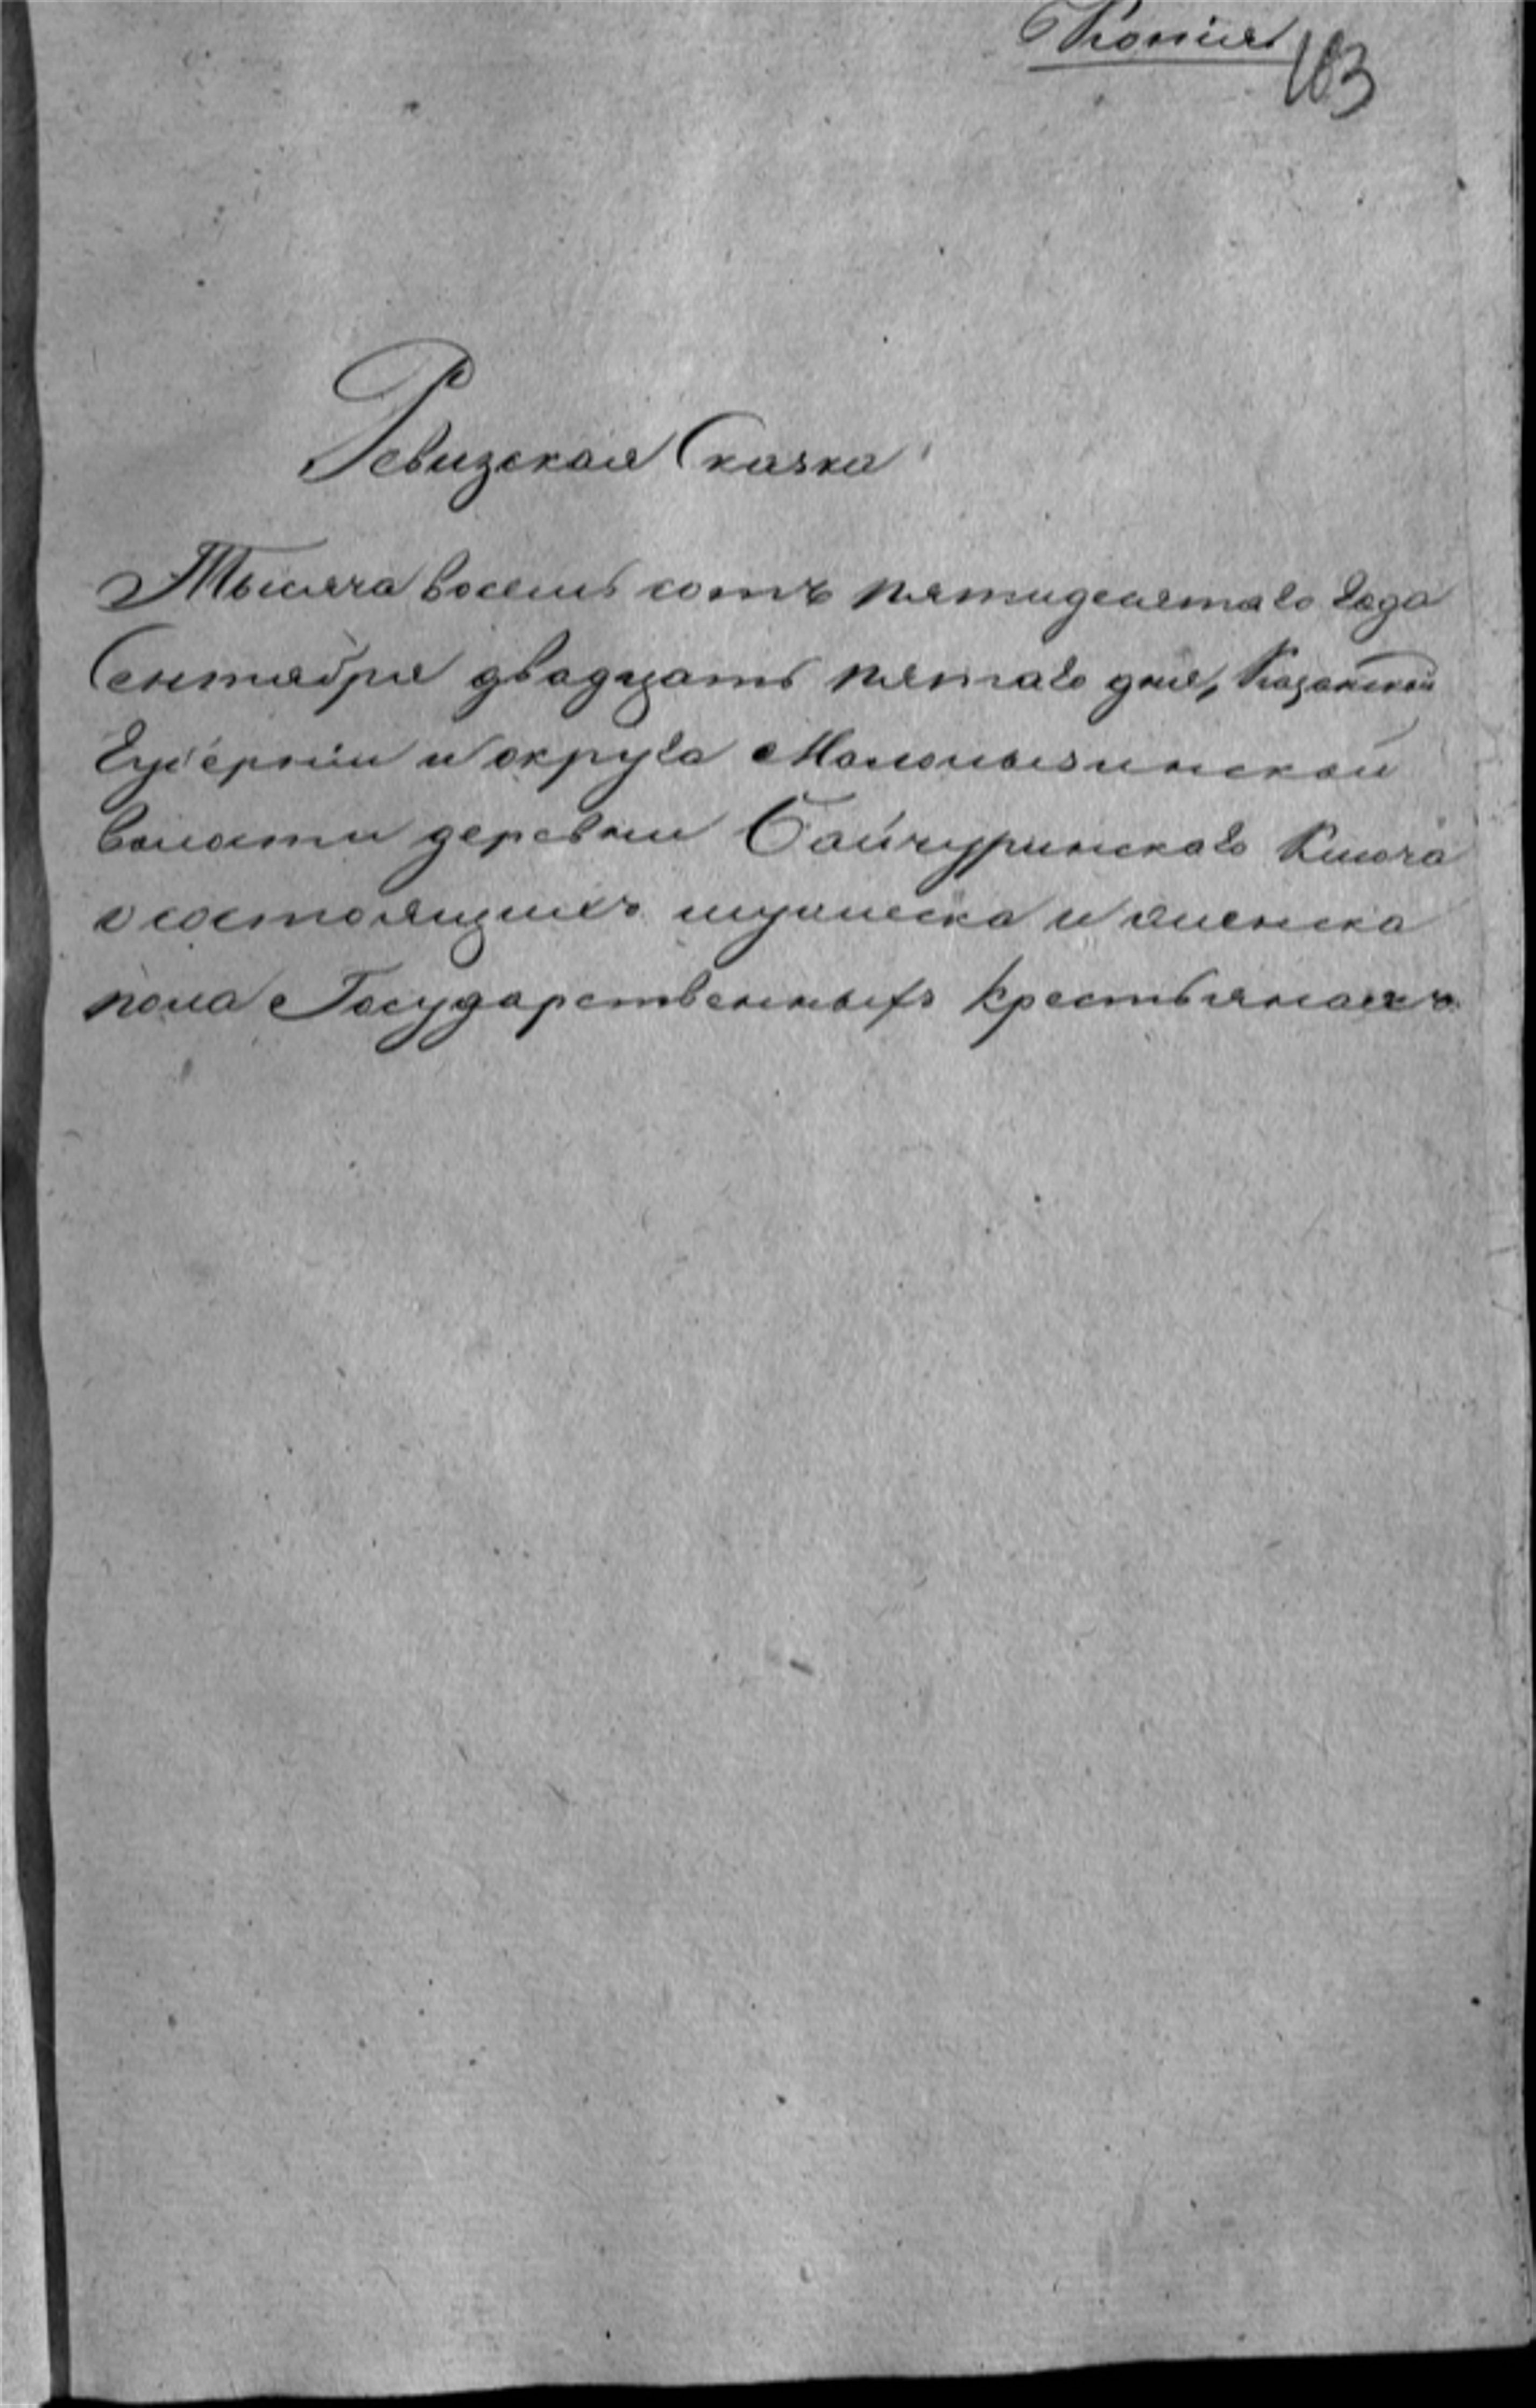 Копія
103
Ревизская Сказка
Тысяча восемь сотъ пятидесятаго года
Сентября двадцать пятаго дня, Казанской
Губерніи и округа
волости деревни Байчуринскаго Ключа
о состоящихъ мужеска и женска
пола Государственныхъ крестьянахъ